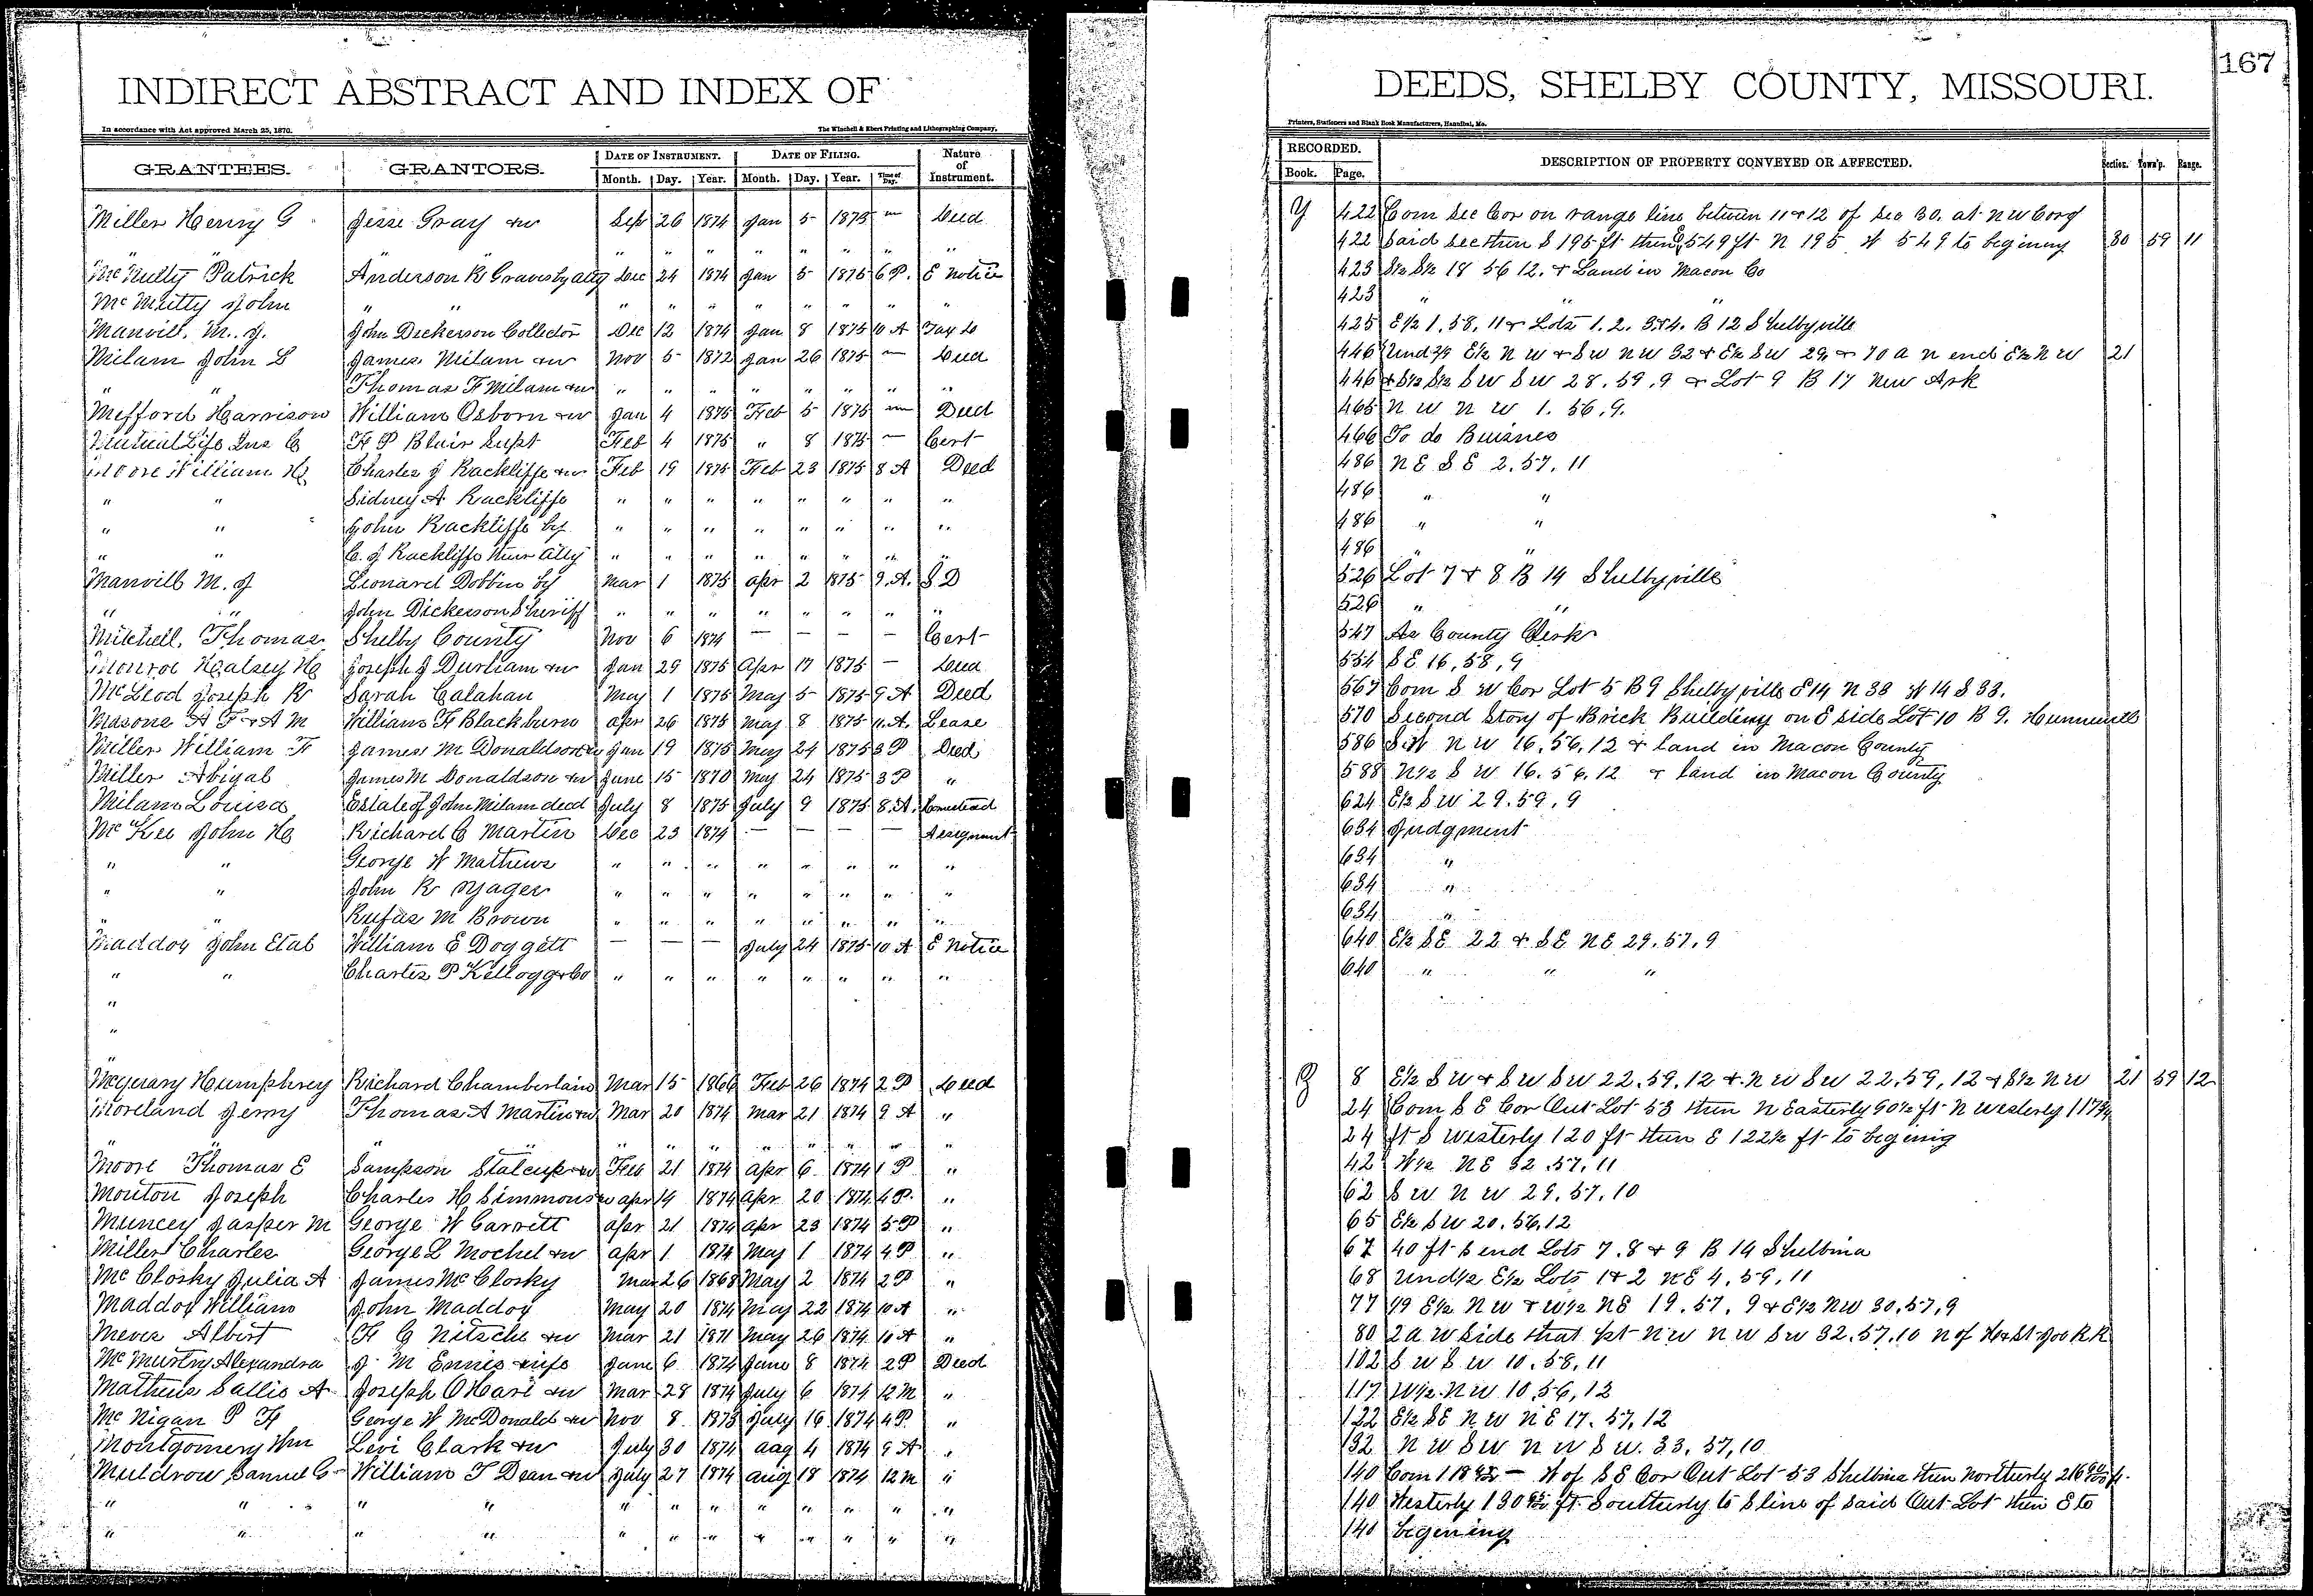 167
INDIRECT ABSTRACT AND INDEX OF DEEDS, SHELBY COUNTY, MISSOURI.
In accordance with Act approved March 25, 1870. The Winchell & Ebert Printing and Lithographing Company, Printers, Stationers and Blank Book Manufacturers, Hannibal, Mo.
GRANTEES. GRANTORS. DATE OF INSTRUMENT. DATE OF FILING. Nature of Instrument. RECORDED. DESCRIPTION OF PROPERTY CONVEYED OR AFFECTED. Section. Town'p. Range.
Month. Day. Year. Month. Day. Year. Time of Day. Book. Page.
Miller Henry G Jesse Gray & w Sep 26 1874 Jan 5 1875 — Deed Y 422 Com Sec Cor on range line between 11 & 12 of Sec 30. at N W Cor of
" " " " " " " " " 422 Said Sec then S 195 ft then E 549 ft N 195 W 549 to begining 30 59 11
McNulty Patrick Anderson R Graves by atty Dec 24 1874 Jan 5 1875 6 P. E Notice 423 S½ S½ 18 56 12. & Land in Macon Co
John " " " " " " " " " " 423 " " "
Manvill. M. J. John Dickerson Collector Dec 12 1874 Jan 8 1875 10 A Tax D 425 E½ 1. 58. 11 & Lots 1. 2. 3 & 4. B 12 Shelbyville
Milam John L James Milam & w Nov 5 1872 Jan 26 1875 — Deed 446 Und E½ N W & S W N W 32 & E½ S W 29, & 70 a N end E½ N W 21
" " Thomas F Milam & w " " " " " " " " 446 & S½ S½ S W S W 28. 59. 9 & Lot 9 B 17 New Ark
Mefford Harrison William Osborn & w Jan 4 1875 Feb 5 1875 — Deed 465 N W N W 1. 56. 9.
Mutual Life Ins C F P Blair Supt Feb 4 1875 " 8 1875 — Cert 466 To do Buisnes
Moore William H Charles J Rackliffe & w Feb 19 1875 Feb 23 1875 8 A Deed 486 N E S E 2. 57. 11
" " Sidney A Rackliffe " " " " " " " " 486 " "
" " John Rackliffe by " " " " " " " " 486 " "
" " C. J Rackliffe their Atty " " " " " " " " 486 "
Manvill M. J Leonard Dobbin by Mar 1 1875 Apr 2 1875 9. A. S D 526 Lot 7 & 8 B 14 Shelbyville
" " John Dickerson Sheriff " " " " " " " " 526 " "
Mitchell. Thomas Shelby County Nov 6 1874 — — — — Cert 547 As County Clerk
Monroe Halsey H Joseph J Durham & w Jan 29 1875 Apr 17 1875 — Deed 554 S E 16, 58, 9
McLeod Joseph R Sarah Calahan May 1 1875 May 5 1875 9 A Deed 567 Com S W Cor Lot 5 B 9 Shelbyville E 14 N 38 W 14 S 38.
Masons A F & A M William H Blackburn Apr 26 1875 May 8 1875 11. A. Lease 570 Second Story of Brick Building on E side Lot 10 B 9. Hunnewell
Miller William F James M Donaldson & w Jan 19 1875 May 24 1875 3 P Deed 586 S W N W 16, 56, 12 & land in Macon County
Miller Abigal James M Donaldson & w June 15 1870 May 24 1875 3 P " 588 N½ S W 16. 56. 12 & land in Macon County
Milam Louisa Estate of John Milam decd July 8 1875 July 9 1875 8. A. Homestead 624 E½ S W 29. 59, 9
McKee John H Richard C Martin Dec 23 1874 — — — — Assignment 634 Judgment
" " George W Mathews " " " " " " " " 634 "
" " John R Yager " " " " " " " " 634 "
" " Rufus M Brown " " " " " " " " 634 "
Maddox John Etal William E Doggett — — — July 24 1875 10 A E Notice 640 E½ S E 22 & S E N E 29. 57. 9
" " Charles P Kellogg & Co " " " " " " " " 640 " " "
"
"
"
Humphrey Richard Chamberlain Mar 15 1866 Feb 26 1874 2 P Deed Z 8 E½ S W & S W S W 22. 59. 12 & N W S W 22. 59, 12 & S½ N W 21 59 12
Moreland Jerry Thomas A Martin & w Mar 20 1874 Mar 21 1874 9 A " 24 Com S E Cor Out Lot 53 then N Easterly 90½ ft N Westerly
" " " " " " " " " " 24 ft S Westerly 120 ft then E 122½ ft to begining
Moore Thomas E Sampson Stalcup & w Feb 21 1874 Apr 6 1874 1 P " 42 W½ N E 32. 57. 11
Mouton Joseph Charles H Simmons & w Apr 14 1874 Apr 20 1874 4 P. " 62 S W N W 29. 57. 10
Muncey Jasper M George W Garrett Apr 21 1874 Apr 23 1874 5 P " 65 E½ S W 20. 56, 12
Miller Charles George L Mochel & w Apr 1 1874 May 1 1874 4 P " 67 40 ft S end Lots 7. 8 & 9 B 14 Shelbina
McClosky Julia A James McClosky Mar 26 1868 May 2 1874 2 P " 68 Und ½ E½ Lots 1 & 2 N E 4. 59. 11
Maddox William John Maddox May 20 1874 May 22 1874 10 A " 77 1/9 E½ N W & W½ N E 19. 57. 9 & E½ N W 30. 57, 9
Meves Albert F C Nitsche & w Mar 21 1871 May 26 1874 10 A " 80 2 a W side that pt N W N W S W 32. 57. 10 N of H & St Joe R R
McMurtry Alexandra J. M Ennis & wife June 6 1874 June 8 1874 2 P Deed 102 S W S W 10. 58. 11
Mathews Sallie A Joseph O'Hare & w Mar 28 1874 July 6 1874 12 M " 117 W½ N W 10, 56, 12
McNigan P H George W McDonald & w Nov 8 1873 July 16 1874 4 P. " 122 E½ S E N W N E 17. 57. 12
Montgomery Wm Levi Clark & w July 30 1874 Aug 4 1874 9 A " 132 N W S W N W S W. 33. 57, 10
Muldrow Samuel C William T Dean & w July 27 1874 Aug 18 1874 12 M " 140 Com W of S E Cor Out Lot 53 Shelbina then Northerly ft.
" " " " " " " " " " " " 140 Westerly ft. Southerly to S line of said Out Lot then E to
" " " " " " " " " " " " 140 begening